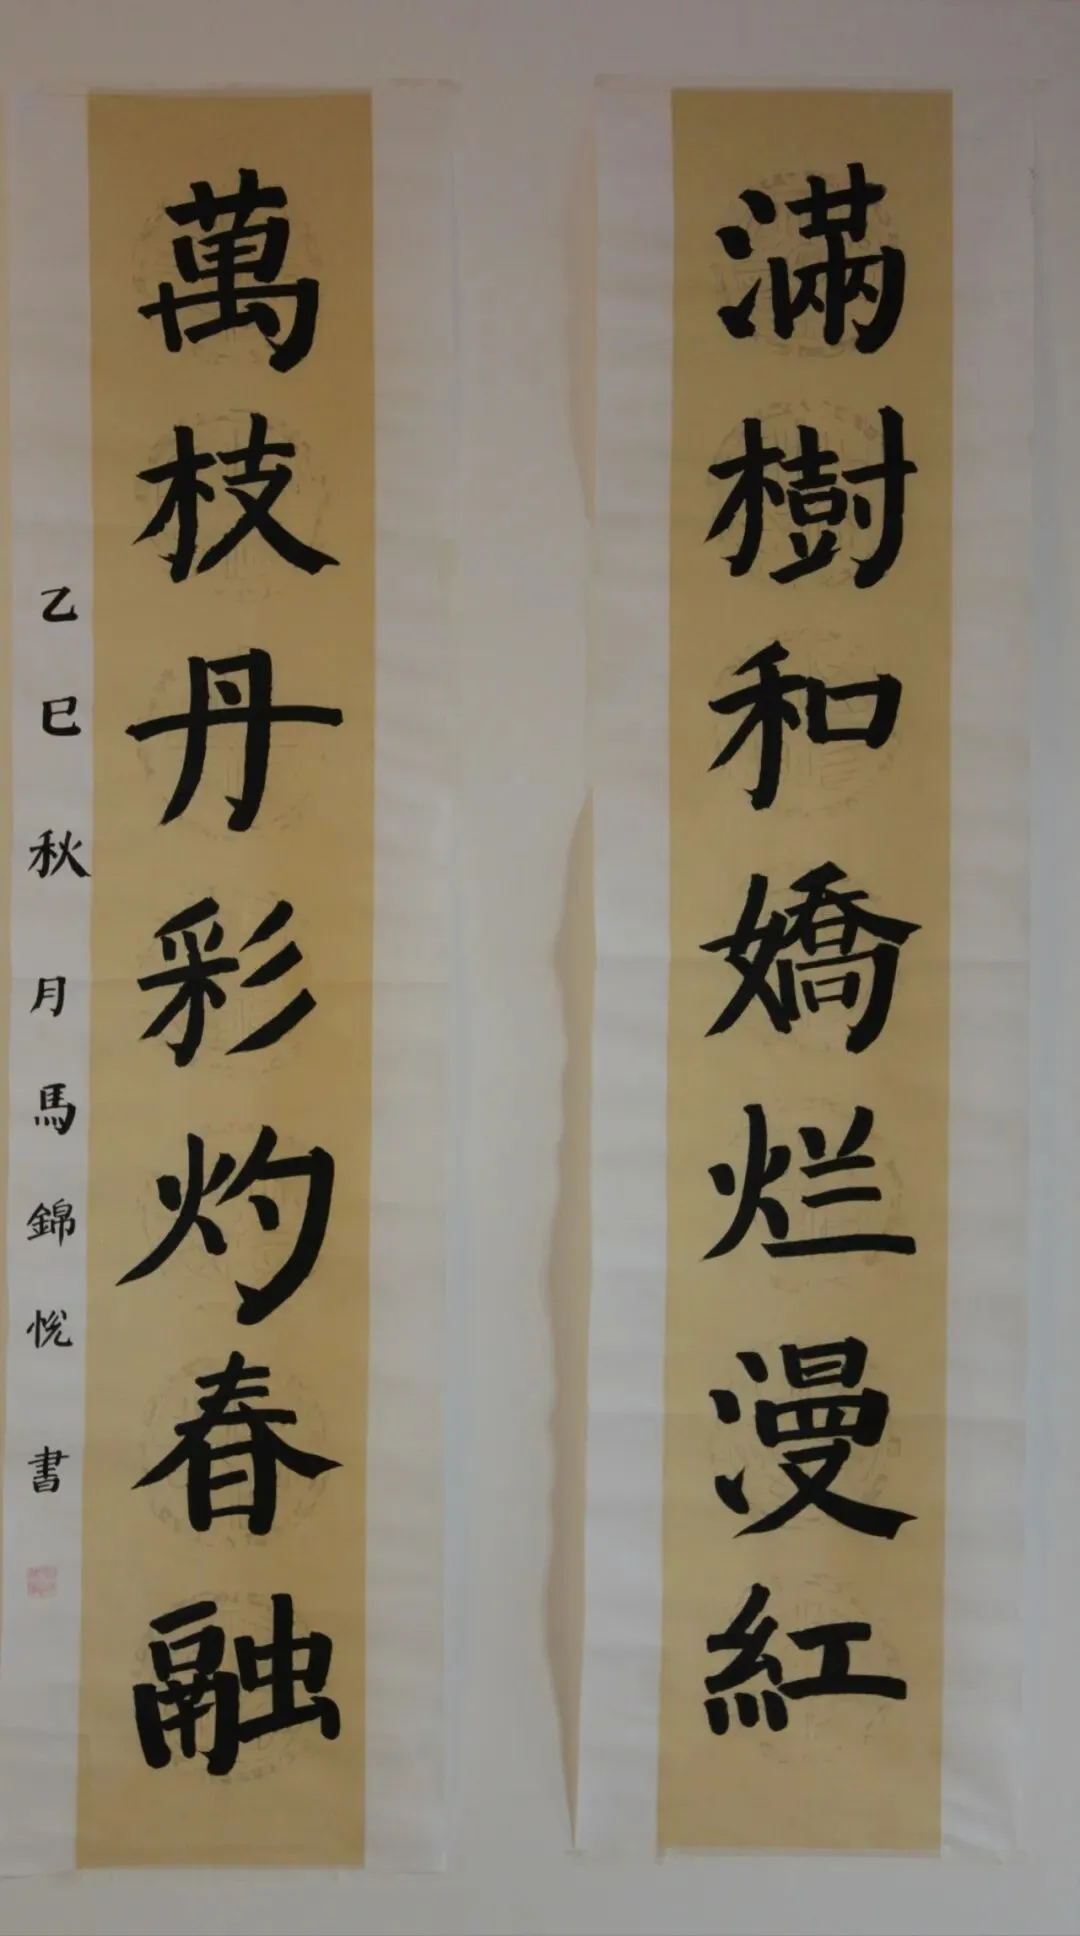 滿樹和嬌烂漫紅
萬枝丹彩灼春融
乙巳秋月馬錦悅書